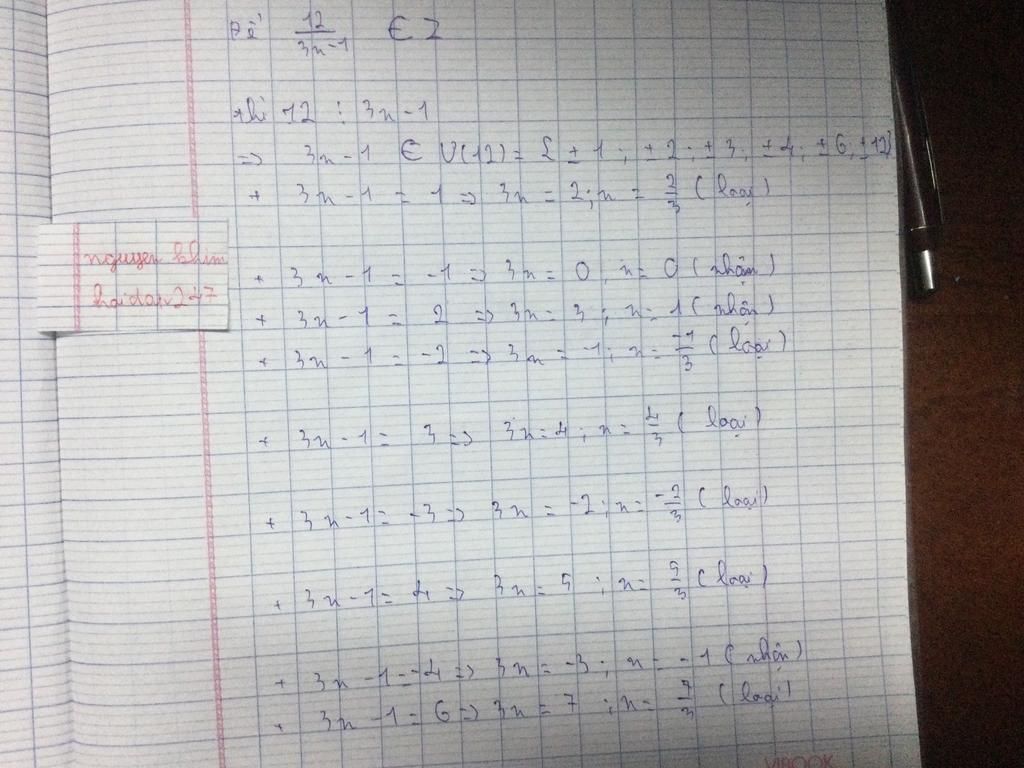 Để 12/3n-1 ∈ Z
thì 12 ⋮ 3n-1
=> 3n-1 ∈ Ư(12) = { ±1; ±2; ±3; ±4; ±6; ±12}
+ 3n-1 = 1 => 3n = 2; n = 2/3 (loại)
+ 3n-1 = -1 => 3n = 0; n = 0 (nhận)
nguyen khim
hoidap247
+ 3n-1 = 2 => 3n = 3; n = 1 (nhận)
+ 3n-1 = -2 => 3n = -1; n = -1/3 (loại)
+ 3n-1 = 3 => 3n = 4; n = 4/3 (loại)
+ 3n-1 = -3 => 3n = -2; n = -2/3 (loại)
+ 3n-1 = 4 => 3n = 5; n = 5/3 (loại)
+ 3n-1 = -4 => 3n = -3; n = -1 (nhận)
+ 3n-1 = 6 => 3n = 7; n = 7/3 (loại)
VIBOOK